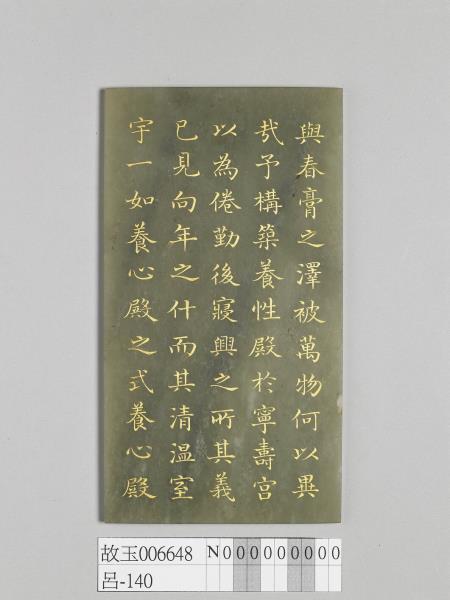 與春膏之澤被萬物何以異
哉予構築養性殿於寧壽宮
以為倦勤後寢興之所其義
已見向年之什而其清温室
宇一如養心殿之式養心殿
故玉006648
呂-140
N000000000